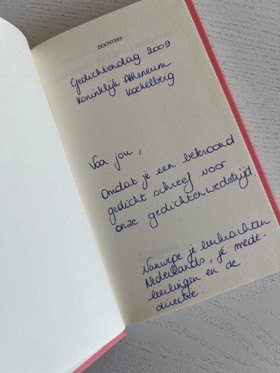 DOCHTERS
Gedichtendag 2009
Koninklijk Atheneum
Koekelberg
Voor jou,
Omdat je een bekroond
gedicht schreef voor
onze gedichtenwedstrijd.
Vanwege je leerkrachten
Nederlands, je mede-
leerlingen en de
directie.